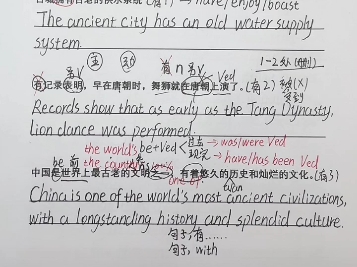 → have/enjoy/boast
The ancient city has an old water supply
system.
有 n
1-2处(删)
有记录表明，早在唐朝时，舞狮就在唐朝上演了。(有2)
Ved
Records show that as early as the Tang Dynasty,
lion dance was performed.
be+Ved
→ was/were Ved
the world's
现完 → have/has been Ved
be 前 the country's
one of
中国是世界上最古老的文明之一，有着悠久的历史和灿烂的文化。(有3)
China is one of the world's most ancient civilizations,
with a longstanding history and splendid culture.
句子，有……
句子，with